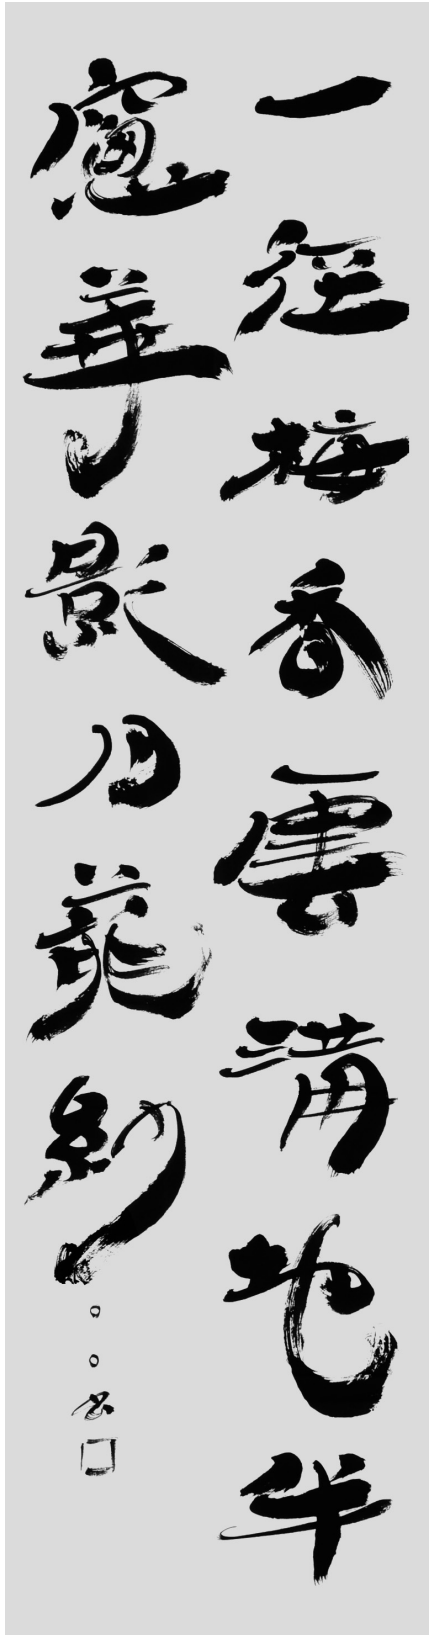 一径梅香雲満地半
窻華影月籠紗
○○書